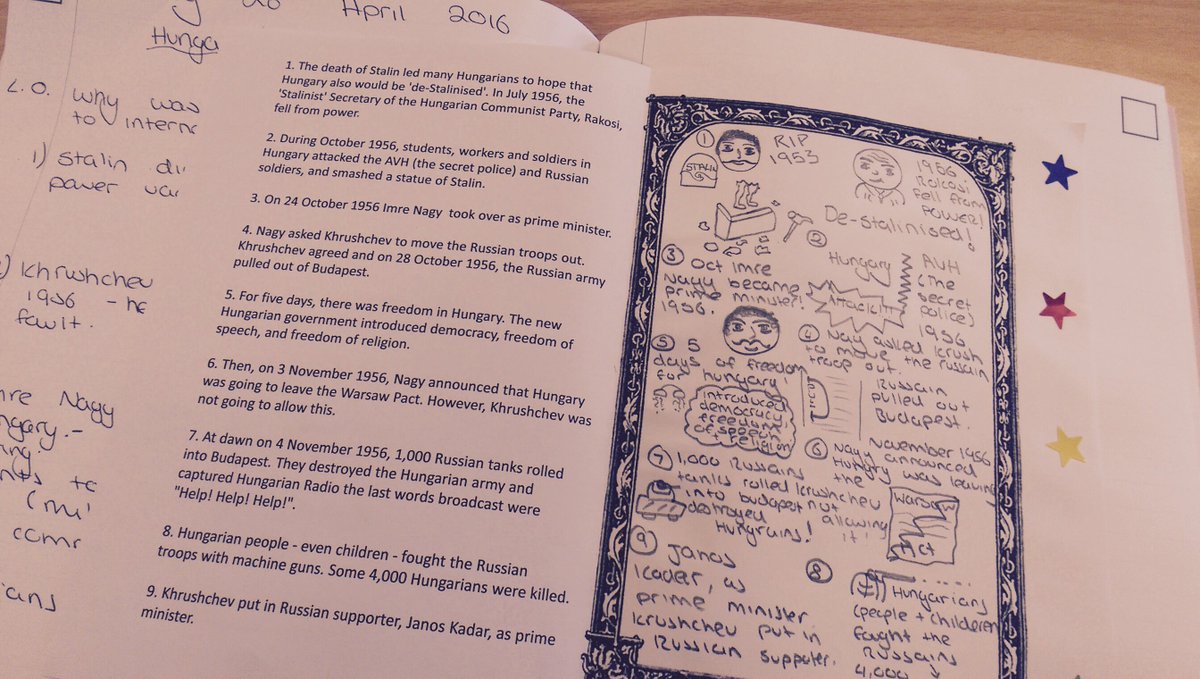 April 2016
Hunga
L.O. why was
to intern
1) Stalin di
power var
Khrushchev
1956 - he
fault.
mre Nagy
ngary.-
comr
ians
1. The death of Stalin led many Hungarians to hope that
Hungary also would be 'de-Stalinised'. In July 1956, the
'Stalinist' Secretary of the Hungarian Communist Party, Rakosi,
fell from power.
2. During October 1956, students, workers and soldiers in
Hungary attacked the AVH (the secret police) and Russian
soldiers, and smashed a statue of Stalin.
3. On 24 October 1956 Imre Nagy took over as prime minister.
4. Nagy asked Khrushchev to move the Russian troops out.
Khrushchev agreed and on 28 October 1956, the Russian army
pulled out of Budapest.
5. For five days, there was freedom in Hungary. The new
Hungarian government introduced democracy, freedom of
speech, and freedom of religion.
6. Then, on 3 November 1956, Nagy announced that Hungary
was going to leave the Warsaw Pact. However, Khrushchev was
not going to allow this.
7. At dawn on 4 November 1956, 1,000 Russian tanks rolled
into Budapest. They destroyed the Hungarian army and
captured Hungarian Radio the last words broadcast were
"Help! Help! Help!".
8. Hungarian people - even children - fought the Russian
troops with machine guns. Some 4,000 Hungarians were killed.
9. Khrushchev put in Russian supporter, Janos Kadar, as prime
minister.
1
RIP
1953
STALIN
1956
Rakosi
fell from
power!
De-stalinised!
2
Hungary
Attack!!!
AVH
(The
secret
police)
1956
3 Oct imre
Nagy became
prime minister!
1956.
4 Nay asked krush
to move the russain
troop out.
Russain
pulled out
Budapest.
5 5
days of freedom
for hungary!
introduced
democracy,
freedom
of speech
+ religion
6 November 1956
Nagy announced
Hungary was leaving
the
Warsaw
Pact
krushcheu
not
allowing
it!
7 1,000 Russains
tanks rolled
into budapest
destroyed
Hungrains!
8
Hungarians
(people + childeren
faught the
Russains
4,000
9 Janos
leader, as
prime minister
krushcheu put in
Russian suppater.